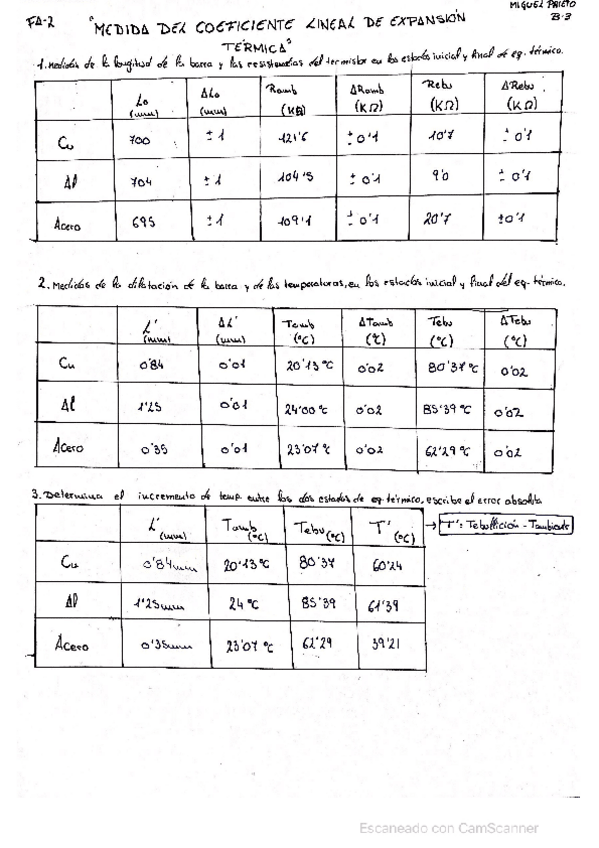 MIGUEL PRIETO
FA-2 "MEDIDA DEL COEFICIENTE LINEAL DE EXPANSIÓN B-3
TÉRMICA"
1. Medidas de la longitud de la barra y las resistencias del termistor en los estados inicial y final de eq. térmico.
Lo (mm) ΔLo (mm) Ramb (KΩ) ΔRamb (KΩ) Rebu (KΩ) ΔRebu (KΩ)
Cu 700 ±1 121'6 ±0'1 10'7 ±0'1
Al 704 ±1 104'5 ±0'1 9'0 ±0'1
Acero 695 ±1 109'1 ±0'1 20'7 ±0'1
2. Medidas de la dilatación de la barra y de las temperaturas, en los estados inicial y final del eq. térmico.
L' (mm) ΔL' (mm) Tamb (ºC) ΔTamb (ºC) Tebu (ºC) ΔTebu (ºC)
Cu 0'84 0'01 20'13 ºC 0'02 80'37 ºC 0'02
Al 1'25 0'01 24'00 ºC 0'02 85'39 ºC 0'02
Acero 0'35 0'01 23'07 ºC 0'02 62'29 ºC 0'02
3. Determina el incremento de temp. entre los dos estados de eq. térmico, escribe el error absoluto
L' (mm) Tamb (ºC) Tebu (ºC) T' (ºC) → T' = Tebullición - Tambiente
Cu 0'84mm 20'13 ºC 80'37 60'24
Al 1'25mm 24 ºC 85'39 61'39
Acero 0'35mm 23'07 ºC 62'29 39'21
Escaneado con CamScanner